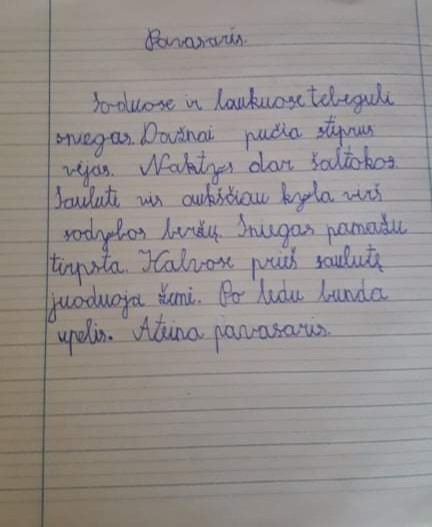 Pavasaris.
Soduose ir laukuose tebeguli
sniegas. Dažnai pučia stiprus
vėjas. Naktys dar šaltokos.
Saulutė vis aukščiau kyla virš
sodybos beržų. Sniegas pamažu
tirpsta. Kalvose prieš saulutę
juoduoja žemė. Po ledu bunda
upelis. Ateina pavasaris.